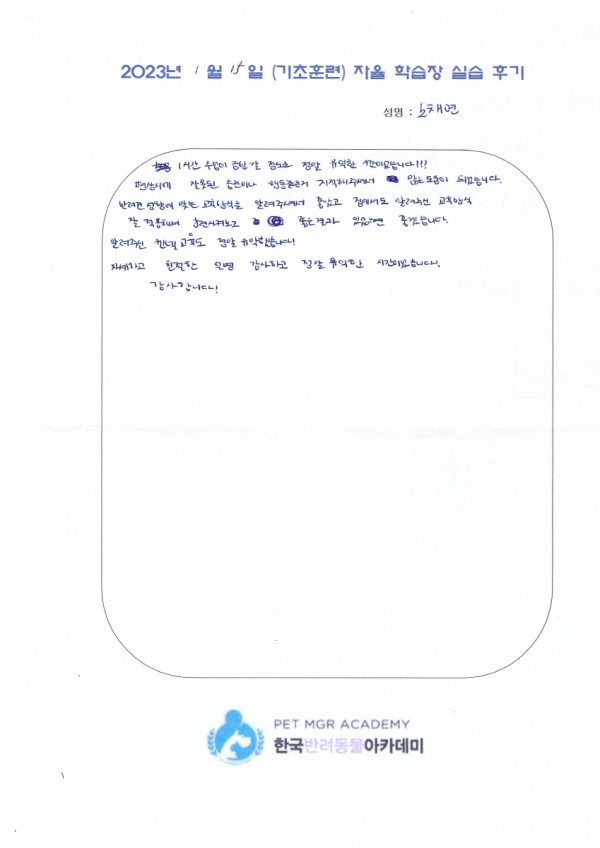 2023년 1 월 15 일 (기초훈련) 자율 학습장 실습 후기
성명 : 채연
1시간 수업이 금방 갈 정도로 정말 유익한 시간이었습니다!!!
평상시에 잘못된 습관이나 행동들은지 지적해주셔서 많은 도움이 되었습니다.
반려견 성향에 맞는 교육방식을 알려주셔서 좋았고 집에서도 알려주신 교육방식
잘 적용해서 훈련시켜보고 좋은결과 있으면 좋겠습니다.
알려주신 교육도 정말 유익했습니다!
자세하고 친절한 설명 감사하고 정말 유익한 시간이었습니다.
감사합니다!
PET MGR ACADEMY
한국반려동물아카데미